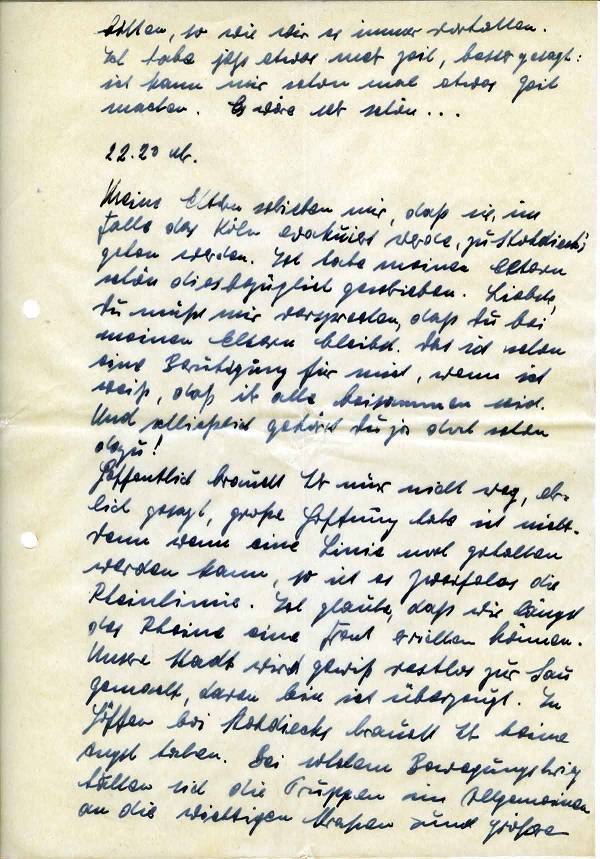 hätten, so wie wir es immer vorhatten.
Ich habe jetzt etwas mehr Zeit, besser gesagt:
ich kann mir schon mal etwas Zeit
machen. Es wäre sehr schön...
22.20 Uhr.
Meine Eltern schrieben mir, daß sie, im
Falle das Köln evakuiert werde, zu Rotdiecks
gehen werden. Ich habe meinen Eltern
schon diesbezüglich geschrieben. Liebste,
Du mußt mir versprechen, daß Du bei
meinen Eltern bleibst. Das ist schon
eine Beruhigung für mich, wenn ich
weiß, daß ihr alle beisammen seid.
Und schließlich gehörst Du ja doch schon
dazu!
Hoffentlich braucht Ihr nur nicht weg, ehr-
lich gesagt, große Hoffnung habe ich nicht.
denn wenn eine Linie noch gehalten
werden kann, so ist es zweifelos die
Rheinlinie. Ich glaube, daß wir längst
des Rheins eine Front erleben können.
Unsere Stadt wird gewiß restlos zur Sau
gemacht, davon bin ich überzeugt. In
bei Rotdiecks braucht Ihr keine
Angst haben. Bei solchem Bewegungskrieg
halten sich die Truppen im Allgemeinen
an die wichtigen Straßen und größere